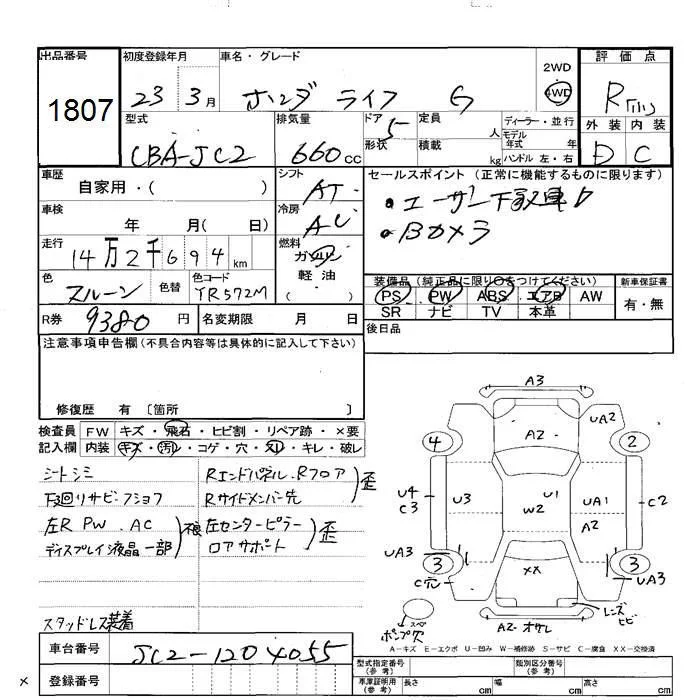 出品番号
1807
初度登録年月
23 3月
車名・グレード
ホンダ ライフ G
2WD
4WD
評価点
R
外装 内装
D C
型式
CBA-JC2
排気量
660cc
ドア 5
形状
定員 人
積載 kg
ディーラー・並行
モデル年式 年式
ハンドル 左・右
車歴
自家用・( )
シフト AT
セールスポイント (正常に機能するものに限ります)
車検
年 月( 日)
冷房 AC
・Bカメラ
走行
14万2千694km
燃料
ガソリン
軽油
( )
色
色替
色コード
YR572M
装備品 (純正品に限り○をつけてください)
PS PW ABS エアB AW
SR ナビ TV 本革
新車保証書
有・無
R券 9380円
名変期限 月 日
後日品
注意事項申告欄 (不具合内容等は具体的に記入して下さい)
修復歴 有 〔箇所 〕
検査員 FW キズ・飛石・ヒビ割・リペア跡・×要
記入欄 内装 キズ・汚レ・コゲ・穴・スレ・キレ・破レ
シートシミ
左R PW . AC 不良
ディスプレイ液晶一部
スタッドレス装着
Rエンドパネル.Rフロア 歪
Rサイドメンバー先
左センターピラー 歪
ロアサポート
A3
UA2
A2
4
2
U4
C3
U3
U1
W2
UA1
A2
C2
UA3
3
3
C穴
XX
UA3
レンズヒビ
A2 オサレ
スペ
A－キズ E－エクボ U－凹み W－補修跡 S－サビ C－腐食 XX－交換済
車台番号
JC2-1204055
登録番号
×
型式指定番号
(参考)
類別区分番号
(参考)
車庫証明用
(参考)
長さ cm
幅 cm
高さ cm